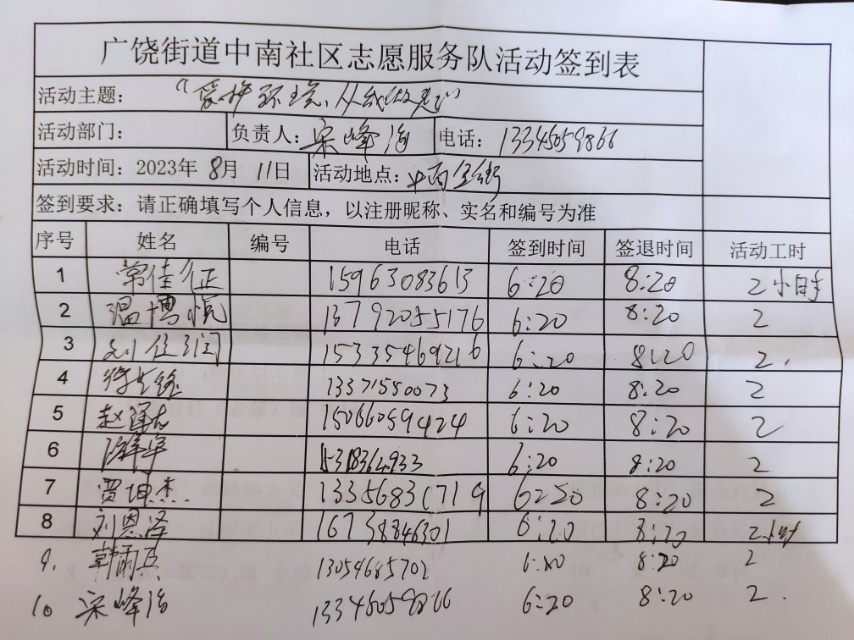 广饶街道中南社区志愿服务队活动签到表
活动主题："爱护环境,从我做起"
活动部门： 负责人：宋峰海 电话：13346059866
活动时间：2023年 8月 11日 活动地点：中南金街
签到要求：请正确填写个人信息，以注册昵称、实名和编号为准
序号 姓名 编号 电话 签到时间 签退时间 活动工时
1 常佳 15963083613 6:20 8:20 2小时
2 温博 13792055176 6:20 8:20 2
3 刘 15335469216 6:20 8:20 2.
4 徐 13371550073 6:20 8:20 2
5 赵 15066059424 6:20 8:20 2
6 6:20 8:20 2
7 贾坤杰 8:20 2
8 刘恩泽 16738846301 6:20 8:20 2小时
9. 韩雨 13054685702 6:20 8:20 2
10 宋峰海 13346059866 6:20 8:20 2.